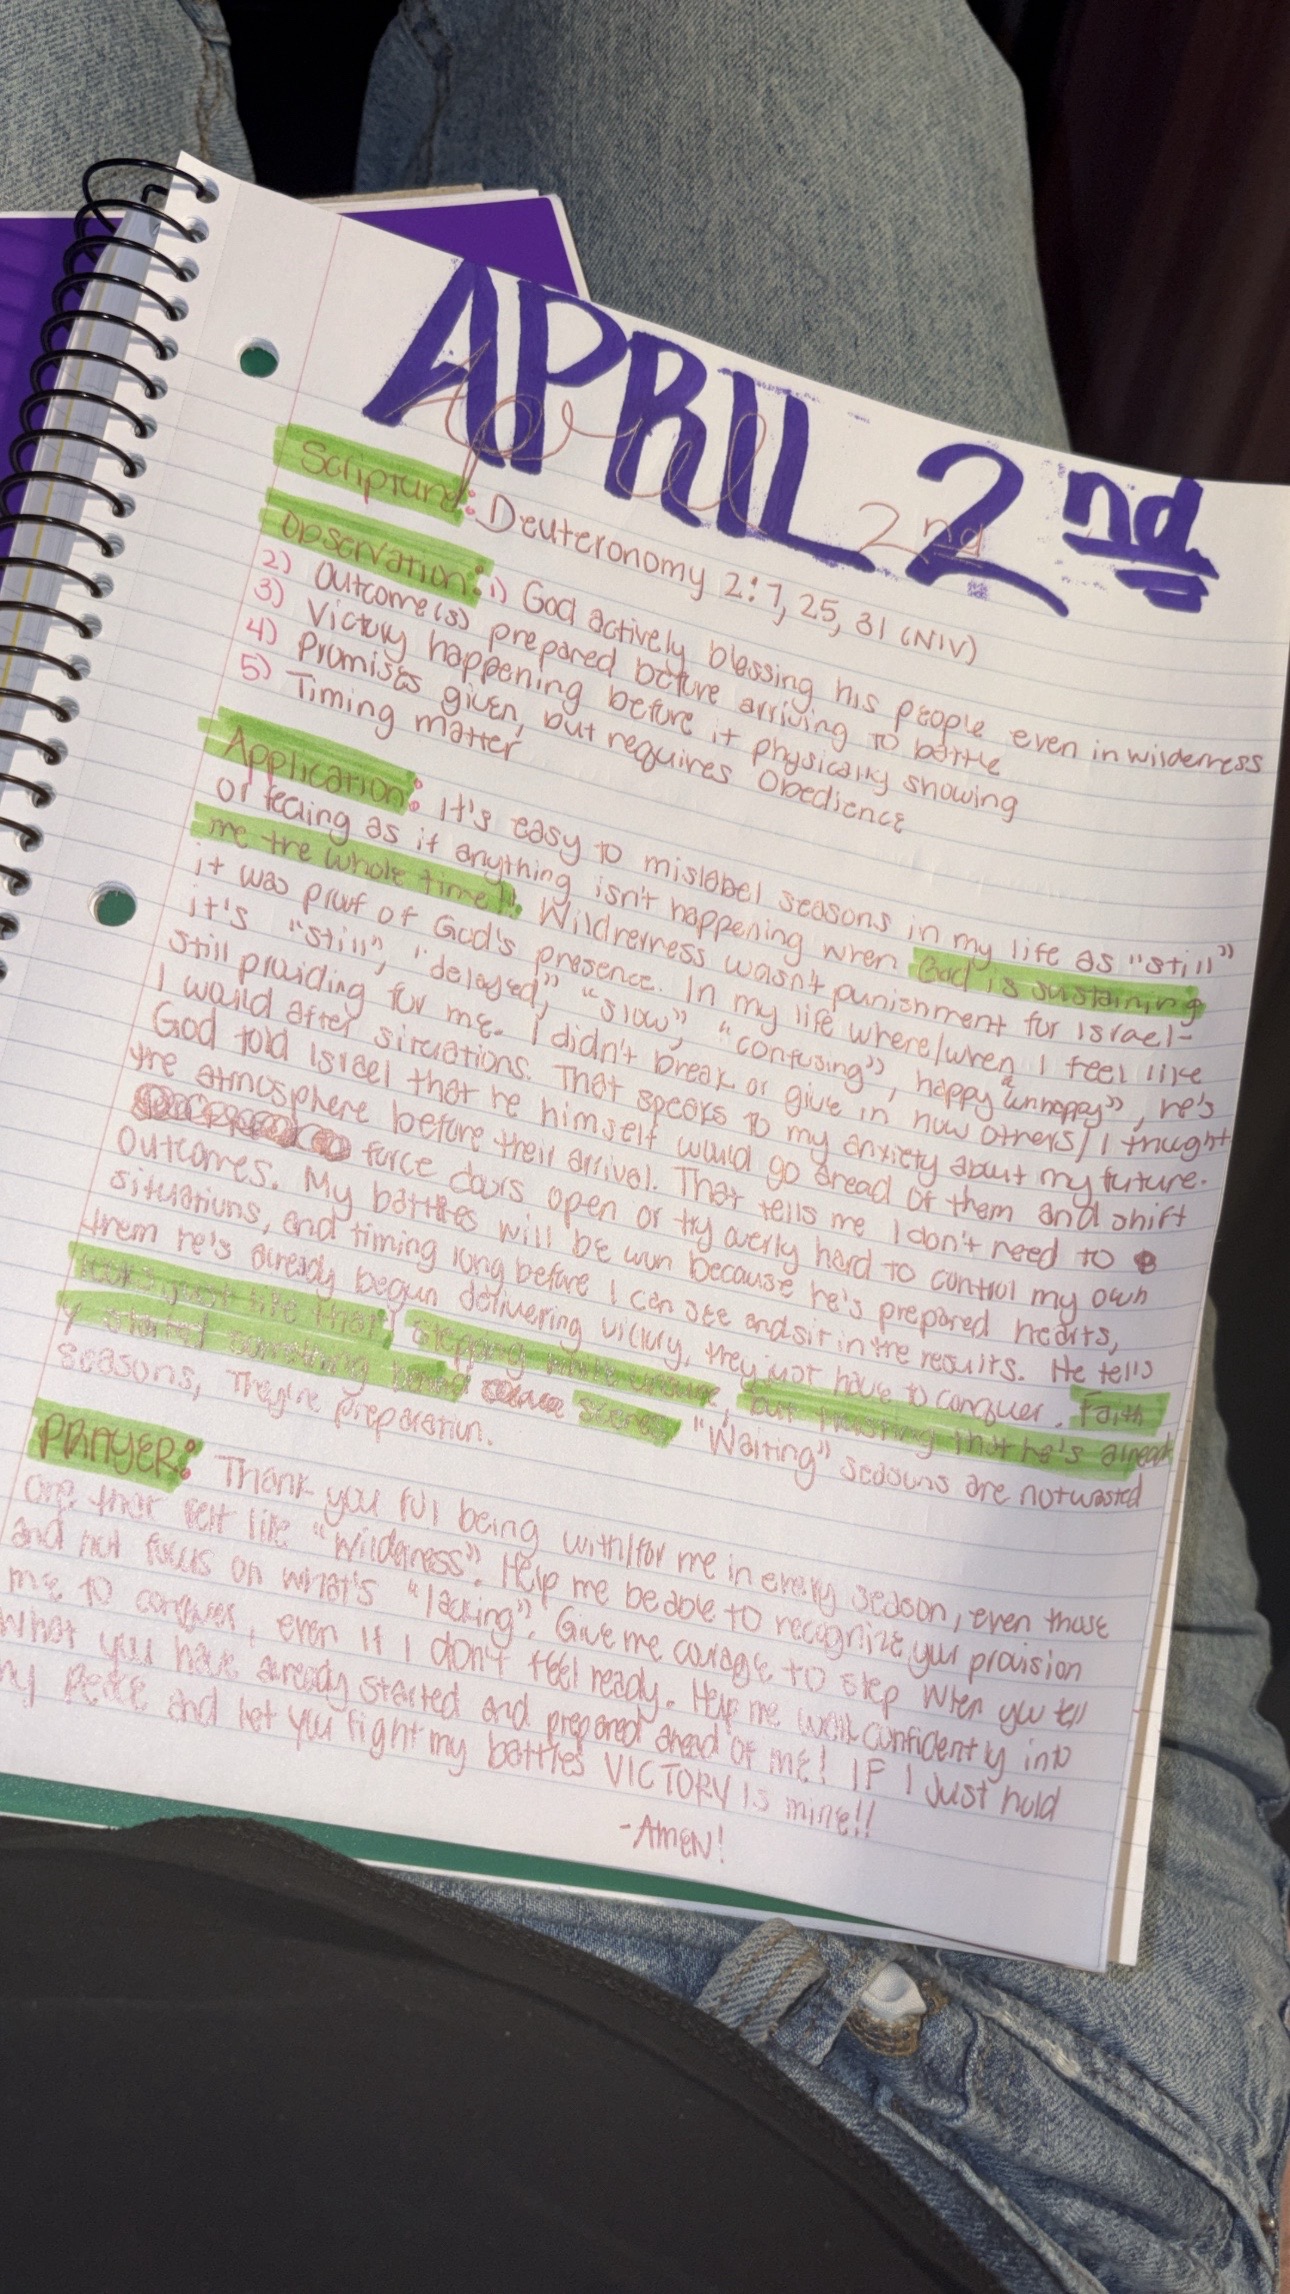 APRIL 2nd
April 2nd
Scripture: Deuteronomy 2:7, 25, 31 (NIV)
Observation: 1) God actively blessing his people even in wilderness
2) Outcome(s) prepared before arriving to battle
3) Victory happening before it physically showing
4) Promises given, but requires Obedience
5) Timing matter
Application: It's easy to mislabel seasons in my life as "still"
or feeling as if anything isn't happening when God is sustaining
me the whole time!! Wilderness wasn't punishment for Israel-
it was proof of God's presence. In my life where/when I feel like
it's "still", "delayed", "slow", "confusing", happy & "unhappy", he's
still providing for me. I didn't break or give in how others/I thought
I would after situations. That speaks to my anxiety about my future.
God told Israel that he himself would go ahead of them and shift
the atmosphere before their arrival. That tells me I don't need to
force doors open or try overly hard to control my own
outcomes. My battles will be won because he's prepared hearts,
situations, and timing long before I can see and sit in the results. He tells
them he's already begun delivering victory, they just have to conquer. Faith
looks just like that, stepping while unsure, but trusting that he's alread
y started something "Waiting" seasons are not wasted
seasons, They're preparation.
PRAYER: Thank you for being with/for me in every season, even those
one that felt like "wilderness". Help me be able to recognize your provision
and not focus on what's "lacking". Give me courage to step when you tell
me to conquer, even if I don't feel ready. Help me walk confidently into
what you have already started and prepared ahead of me! IF I just hold
my peace and let you fight my battles VICTORY is mine!!
-AMEN!